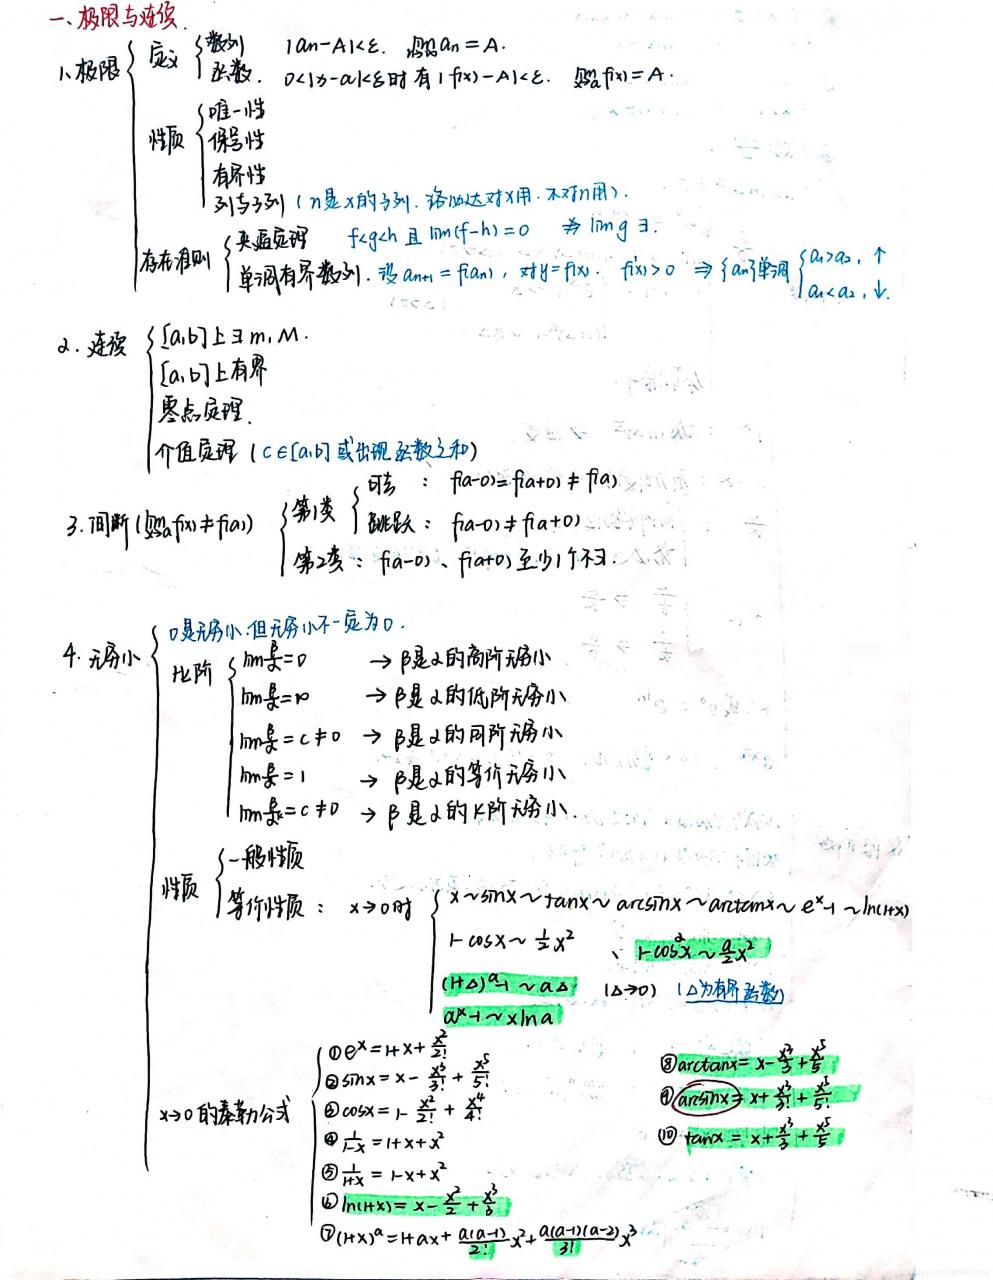 一、极限与连续.
1、极限
定义
数列 |an-A|<ε. lim an = A.
函数. 0<|x-a|<ε时有|f(x)-A|<ε. lim x→a f(x)=A.
性质
唯一性
保号性
有界性
列与子列 (n是x的子列.洛必达对x用.不对n用).
存在准则
夹逼定理 f<g<h 且 lim(f-h)=0 ⇏ lim g ∃.
单调有界数列. 设 an+1=f(an), 对y=f(x). f'(x)>0 ⇒ {an}单调
a1>a2, ↑
a1<a2, ↓.
2. 连续
[a,b]上∃ m, M.
[a,b]上有界
零点定理.
介值定理 (c∈[a,b]或出现函数之和)
3. 间断(lim x→a f(x)≠f(a))
第1类
可去: f(a-0)=f(a+0)≠f(a)
跳跃: f(a-0)≠f(a+0)
第2类: f(a-0)、f(a+0)至少1个不∃.
4. 无穷小
0是无穷小.但无穷小不一定为0.
比阶
lim β/α=0 → β是α的高阶无穷小
lim β/α=∞ → β是α的低阶无穷小
lim β/α=c≠0 → β是α的同阶无穷小
lim β/α=1 → β是α的等价无穷小
lim β/α^k=c≠0 → β是α的k阶无穷小.
性质
一般性质
等价性质: x→0时
x~sinx~tanx~arcsinx~arctanx~e^x-1~ln(1+x)
1-cosx~½x² 、 1-cos^a x~a/2 x²
(1+Δ)^a-1~aΔ (Δ→0) (Δ为有界函数)
a^x-1~xlna
x→0的泰勒公式
①e^x=1+x+x²/2!
②sinx=x-x³/3!+x⁵/5!
③cosx=1-x²/2!+x⁴/4!
④1/(1-x)=1+x+x²
⑤1/(1+x)=1-x+x²
⑥ln(1+x)=x-x²/2+x³/3
⑦(1+x)^a=1+ax+a(a-1)/2! x²+a(a-1)(a-2)/3! x³
⑧arctanx=x-x³/3+x⁵/5
⑨arcsinx=x+x³/3!+x⁵/5!
⑩tanx=x+x³/3+x⁵/5